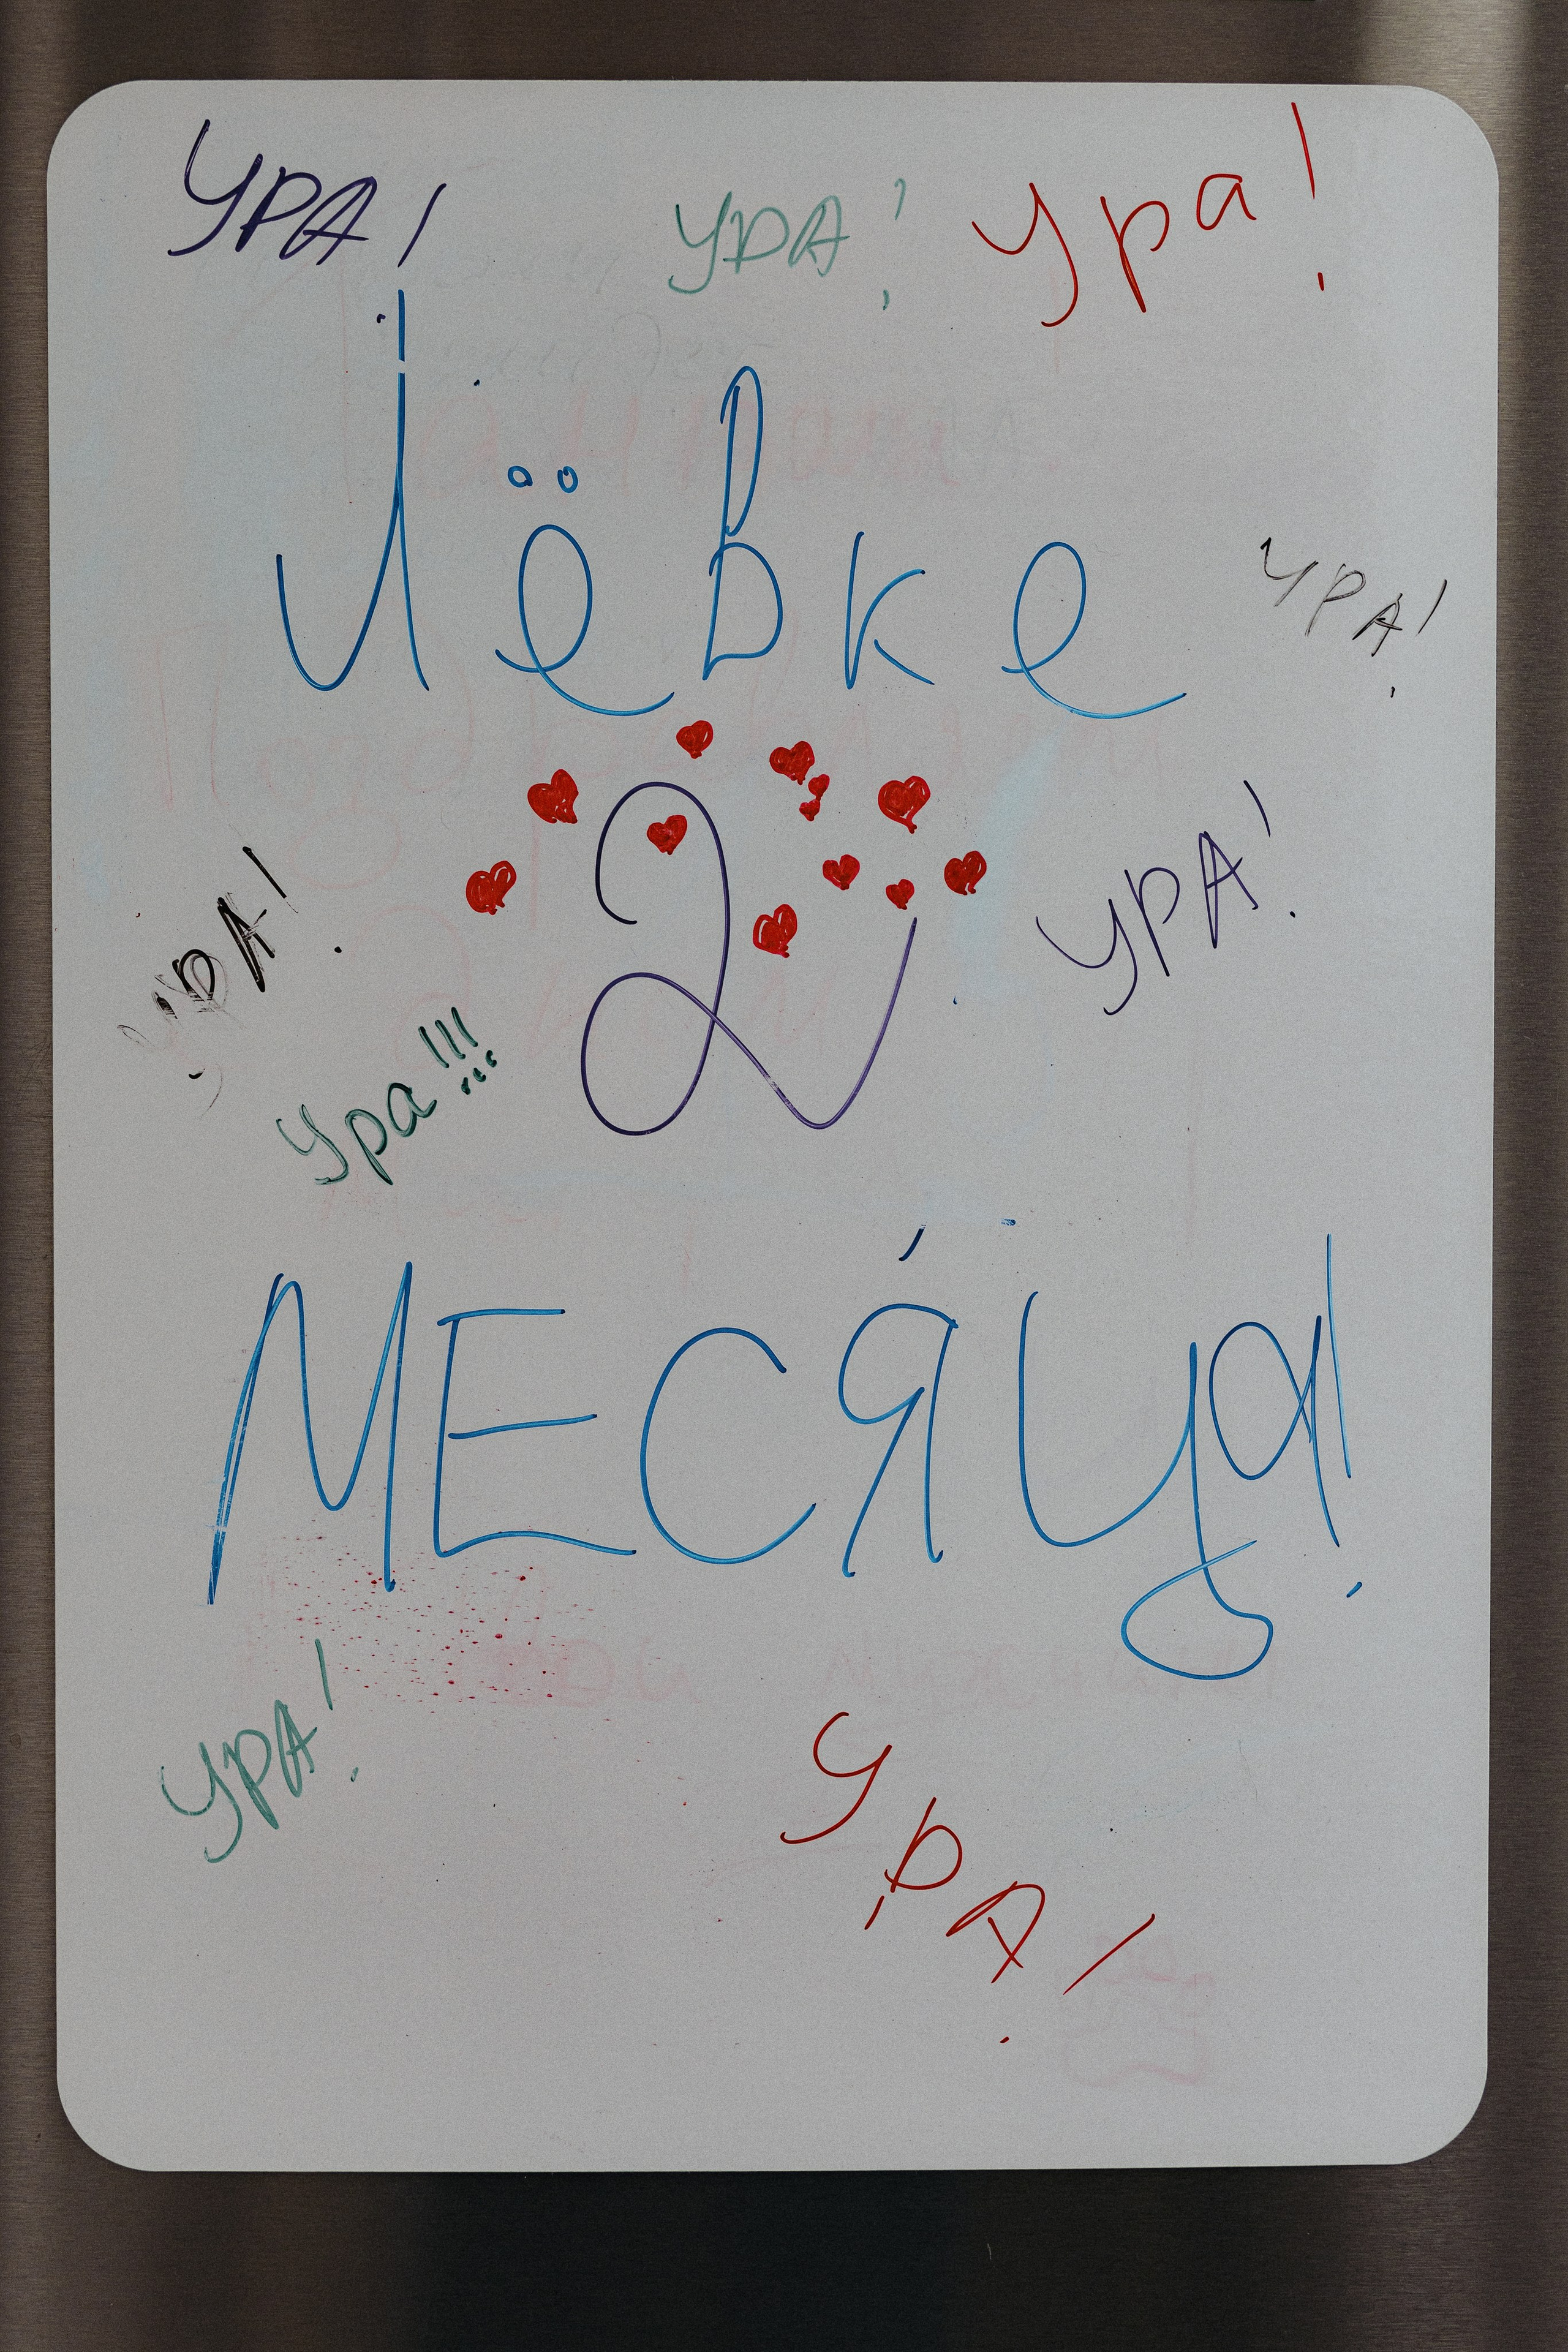 УРА! УРА! Ура!
Лёвке
УРА!
2
УРА!
УРА!
Ура!!!
МЕСЯЦа!
УРА!
УРА!